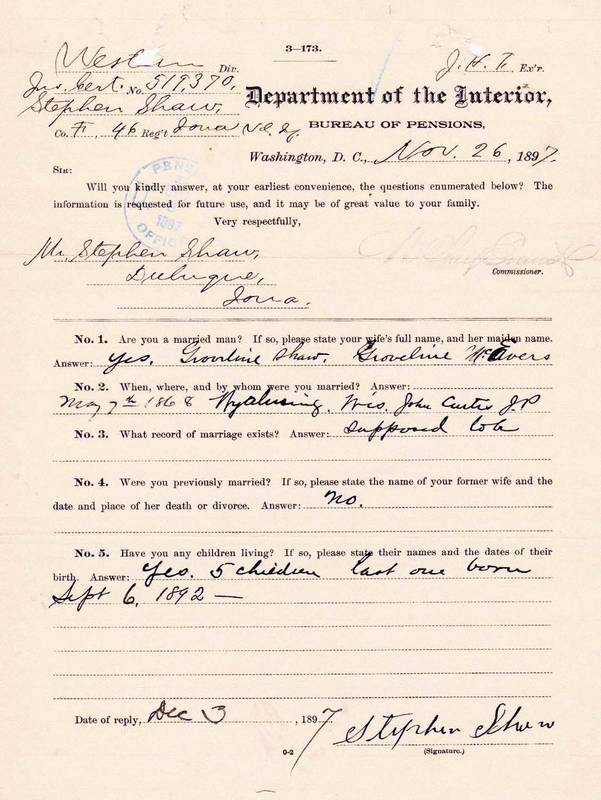 3—173.
Western Div. J. H. T. Ex'r.
Ins. Cert. No. 519,370,
Stephen Shaw, Department of the Interior,
Co. F, 46 Reg't Iowa Vol. Inf. BUREAU OF PENSIONS,
Washington, D. C., Nov. 26, 1897.
SIR:
Will you kindly answer, at your earliest convenience, the questions enumerated below? The
information is requested for future use, and it may be of great value to your family.
Very respectfully,
1897
OFFICE
Mr. Stephen Shaw,
Dubuque,
Iowa.
Commissioner.
No. 1. Are you a married man? If so, please state your wife's full name, and her maiden name.
Answer: yes. Groveline Shaw. Groveline McEvers
No. 2. When, where, and by whom were you married? Answer:
May 7th 1868 Wyalusing, Wis. John Curtis J.P
No. 3. What record of marriage exists? Answer: Supposed to be
No. 4. Were you previously married? If so, please state the name of your former wife and the
date and place of her death or divorce. Answer: No.
No. 5. Have you any children living? If so, please state their names and the dates of their
birth. Answer: Yes. 5 children last one born
Sept 6, 1892 —
Date of reply, Dec 3, 1897 Stephen Shaw
6-2 (Signature.)